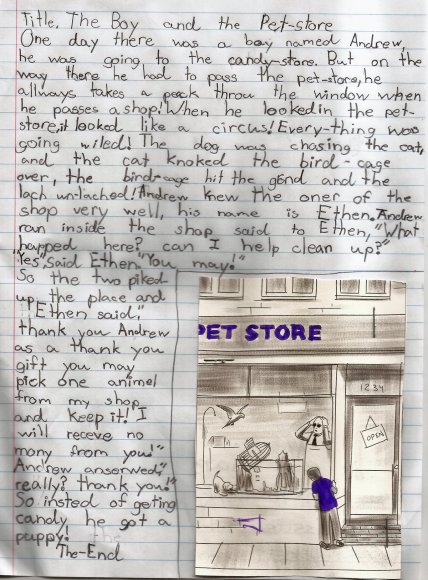 Title, The Boy and the Pet-store
One day there was a boy named Andrew,
he was going to the candy-store. But on the
way there he had to pass the pet-store, he
allways takes a peek throu the window when
he passes a shop! When he looked in the pet-
store, it looked like a circus! Every-thing was
going wiled! The dog was chasing the cat,
and the cat knoked the bird-cage
over, the bird-cage hit the gond and the
loch un-lached! Andrew knew the oner of the
shop very well, his name is Ethen. Andrew
ran inside the shop said to Ethen, "What
happed here? can I help clean up?"
"Yes", said Ethen "You may!"
So the two piked-
up the place and
Ethen said,"
thank you Andrew
as a thank you
gift you may
pick one animel
from my shop
and keep it! I
will receve no
mony from you!"
Andrew anserwed,"
really? thank you!"
So instead of geting
candy he got a
puppy!
The-End
PET STORE
1234
OPEN